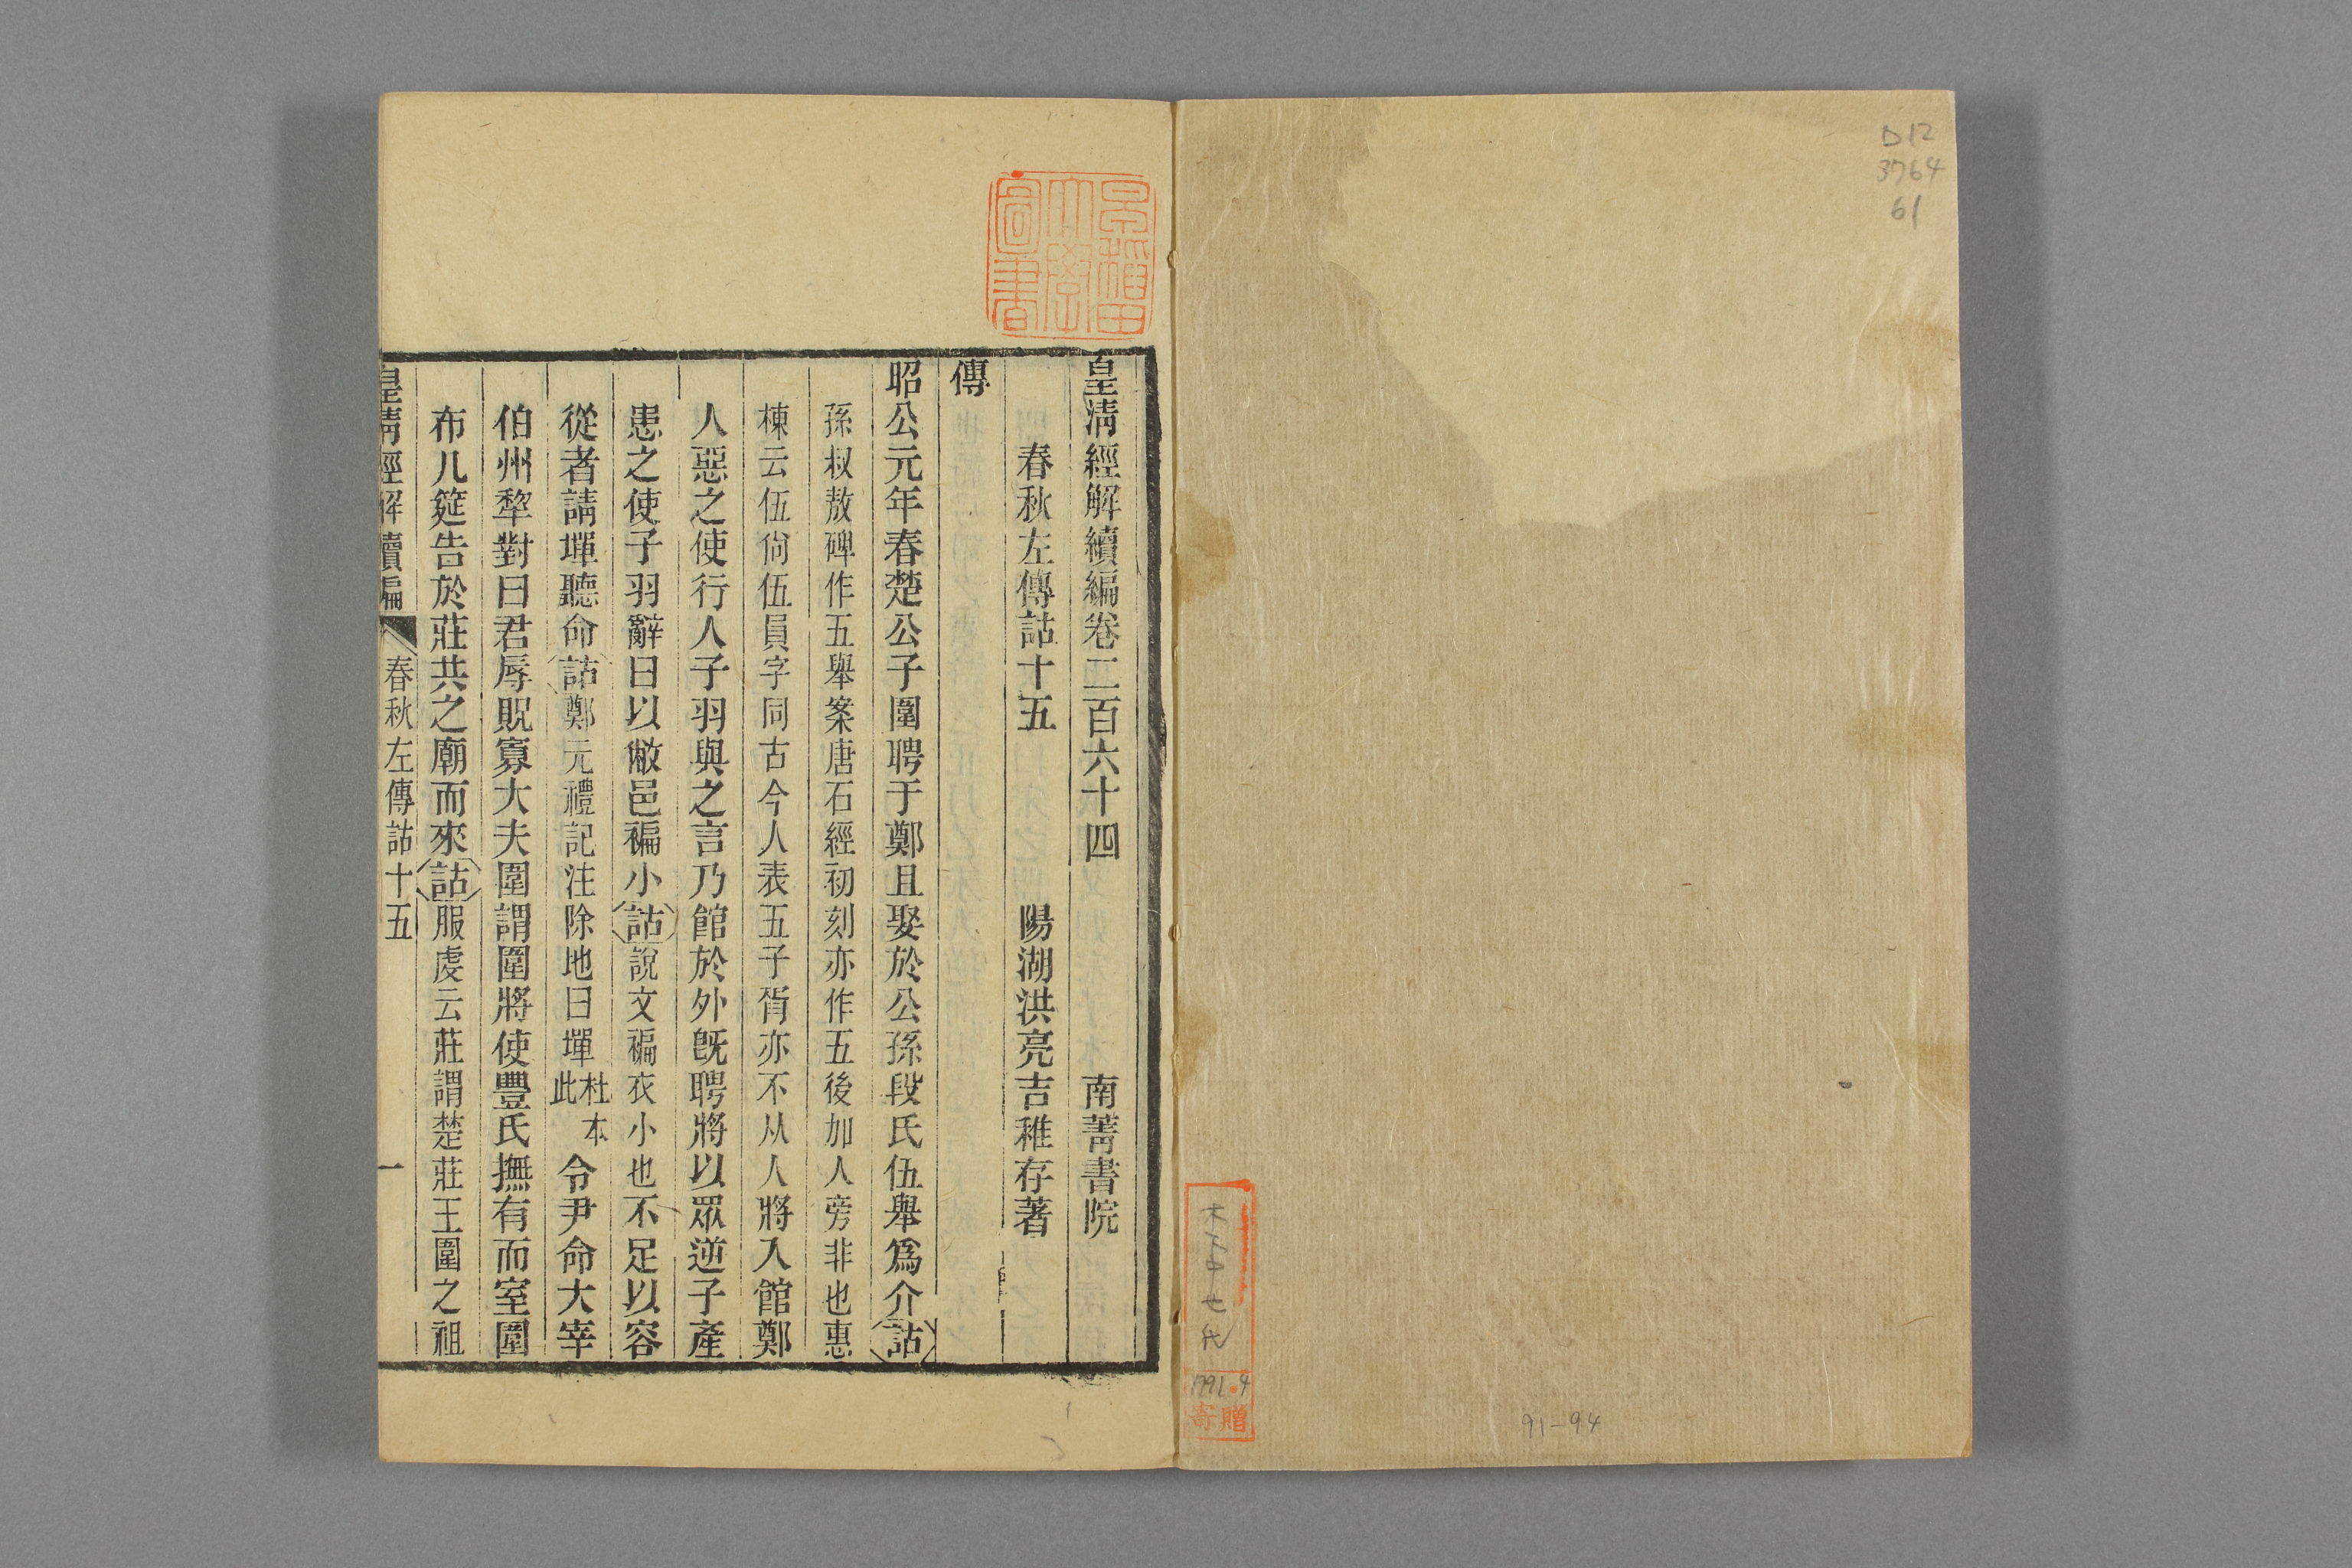 D12
3764
61
1991.4
寄贈
91-94
早稲田大學圖書
皇清經解續編卷二百六十四 南菁書院
春秋左傳詁十五 陽湖洪亮吉稚存著
傳
昭公元年春楚公子圍聘于鄭且娶於公孫段氏伍舉爲介詁
孫叔敖碑作五舉案唐石經初刻亦作五後加人旁非也惠
棟云伍尙伍員字同古今人表五子胥亦不从人將入館鄭
人惡之使行人子羽與之言乃館於外旣聘將以眾逆子產
患之使子羽辭曰以敝邑褊小詁說文褊衣小也不足以容
從者請墠聽命詁鄭元禮記注除地曰墠杜本此令尹命大宰
伯州犂對曰君辱貺寡大夫圍謂圍將使豐氏撫有而室圍
布几筵告於莊共之廟而來詁服虔云莊謂楚莊王圍之祖
皇清經解續編 春秋左傳詁十五 一